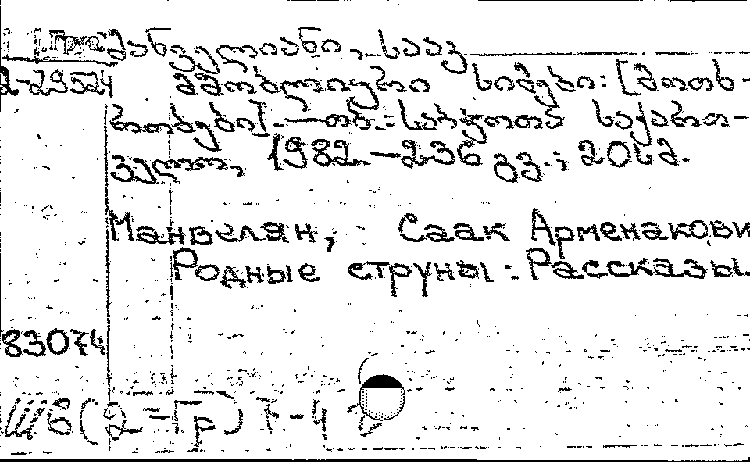 Груз
მანველიანი, სააკ
2-29524 მშობლიური სიმები: [მოთხ-
რობები]. — თბ.: საბჭოთა საქართ-
ველო, 1982. — 236 გვ.; 20 სმ.
Манвелян, Саак Арменакови
Родные струны: Рассказы.
83074
Ш6(2=Гр)7-4